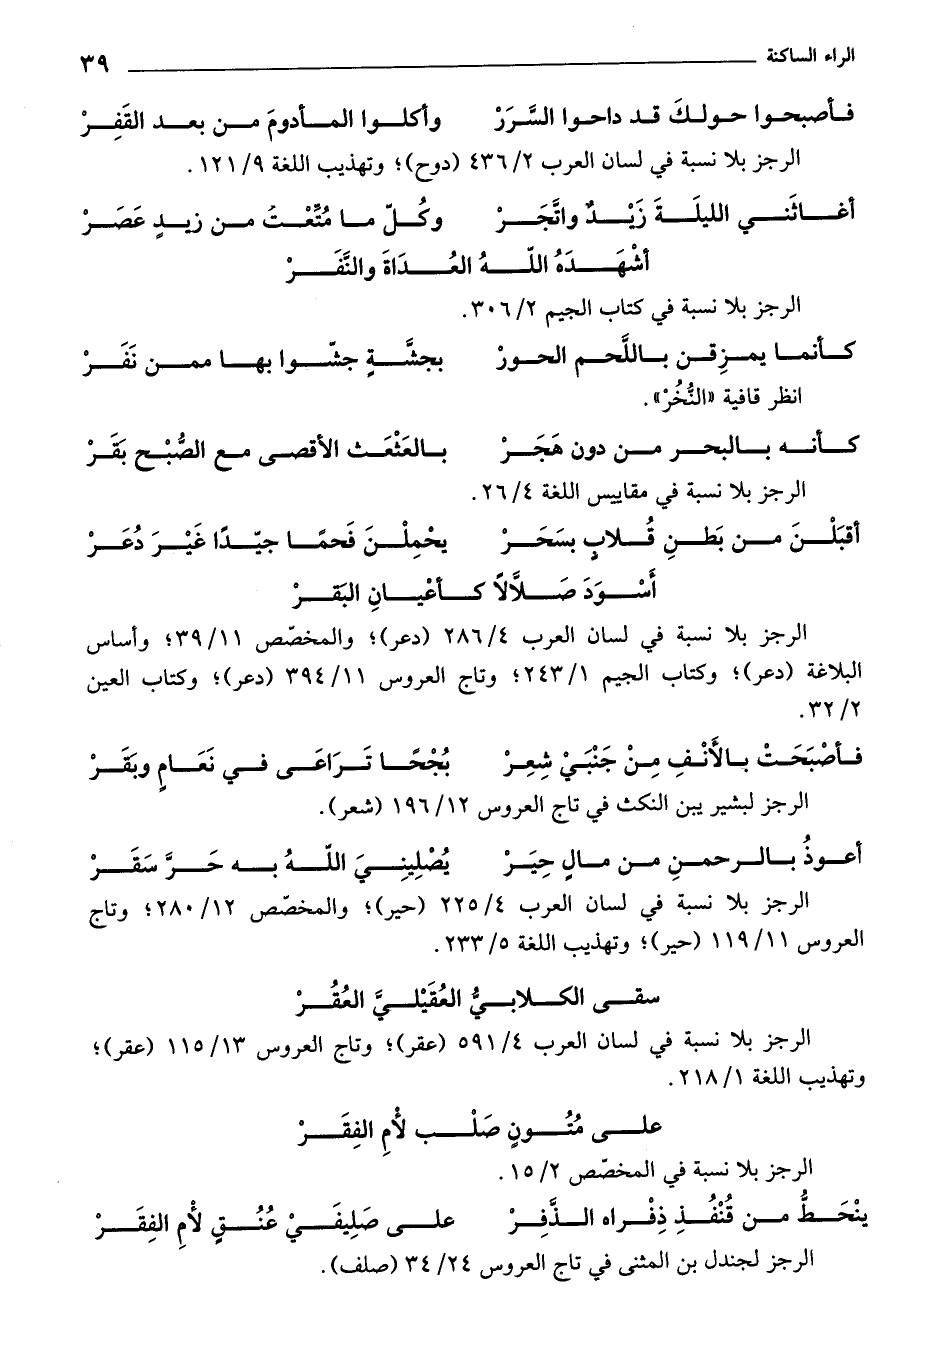 الراء الساكنة ٣٩
فـأصبحـوا حـولـكَ قـد داحـوا السَّرَرْ وأكلــوا المــأدومَ مــن بعــد القَفِــرْ
الرجز بلا نسبة في لسان العرب ٢/ ٤٣٦ (دوح)؛ وتهذيب اللغة ٩/ ١٢١.
أغــاثَنــي الليلــةَ زَيْــدٌ واتَّجَــرْ وكُــلّ مــا مُتِّعْــتُ مــن زيــدٍ عَصَــرْ
أشْهَــدَهُ اللّــهُ العُــدَاةَ والنَّفَــرْ
الرجز بلا نسبة في كتاب الجيم ٢/ ٣٠٦.
كــأنمــا يمــزِقــن بــاللَّحــم الحــورْ بجشَّــةٍ جشّــوا بهــا ممــن نَفَــرْ
انظر قافية «النُّخُرْ».
كــأنــه بــالبحــر مــن دون هَجَــرْ بــالعَثْعَــث الأقصــى مــع الصُّبْــح بَقَــرْ
الرجز بلا نسبة في مقاييس اللغة ٤/ ٢٦.
أقبَلْــنَ مــن بَطْــنِ قُــلابٍ بسَحَــرْ يحْمِلْــنَ فَحمًــا جيّــدًا غَيْــرَ دُعَــرْ
أَسْــوَدَ صَــلَّالًا كــأعْيــانِ البَقَــرْ
الرجز بلا نسبة في لسان العرب ٤/ ٢٨٦ (دعر)؛ والمخصّص ١١/ ٣٩؛ وأساس
البلاغة (دعر)؛ وكتاب الجيم ١/ ٢٤٣؛ وتاج العروس ١١/ ٣٩٤ (دعر)؛ وكتاب العين
٢/ ٣٢.
فــأصْبَحَــتْ بــالأَنْــفِ مِــنْ جَنْبَــيْ شِعِــرْ بُجْحًــا تَــرَاعَــى فــي نَعَــامٍ وبَقَــرْ
الرجز لبشير يبن النكث في تاج العروس ١٢/ ١٩٦ (شعر).
أعــوذُ بــالــرحمــنِ مــن مــالٍ حِيَــرْ يُصْلِينِــيَ اللّــهُ بــه حَــرَّ سَقَــرْ
الرجز بلا نسبة في لسان العرب ٤/ ٢٢٥ (حير)؛ والمخصّص ١٢/ ٢٨٠؛ وتاج
العروس ١١/ ١١٩ (حير)؛ وتهذيب اللغة ٥/ ٢٣٣.
سقــى الكــلابــيُّ العُقَيْلــيَّ العُقُــرْ
الرجز بلا نسبة في لسان العرب ٤/ ٥٩١ (عقر)؛ وتاج العروس ١٣/ ١١٥ (عقر)؛
وتهذيب اللغة ١/ ٢١٨.
علــى مُتُــونٍ صَلْــب لُأمِ الفِقَــرْ
الرجز بلا نسبة في المخصّص ٢/ ١٥.
ينْحَــطُّ مــن قُنْفُــذِ ذِفْــراه الــذَّفِــرْ علــى صَلِيفَــيْ عُنُــقٍ لأْمِ الفِقَــرْ
الرجز لجندل بن المثنى في تاج العروس ٢٤/ ٣٤ (صلف).